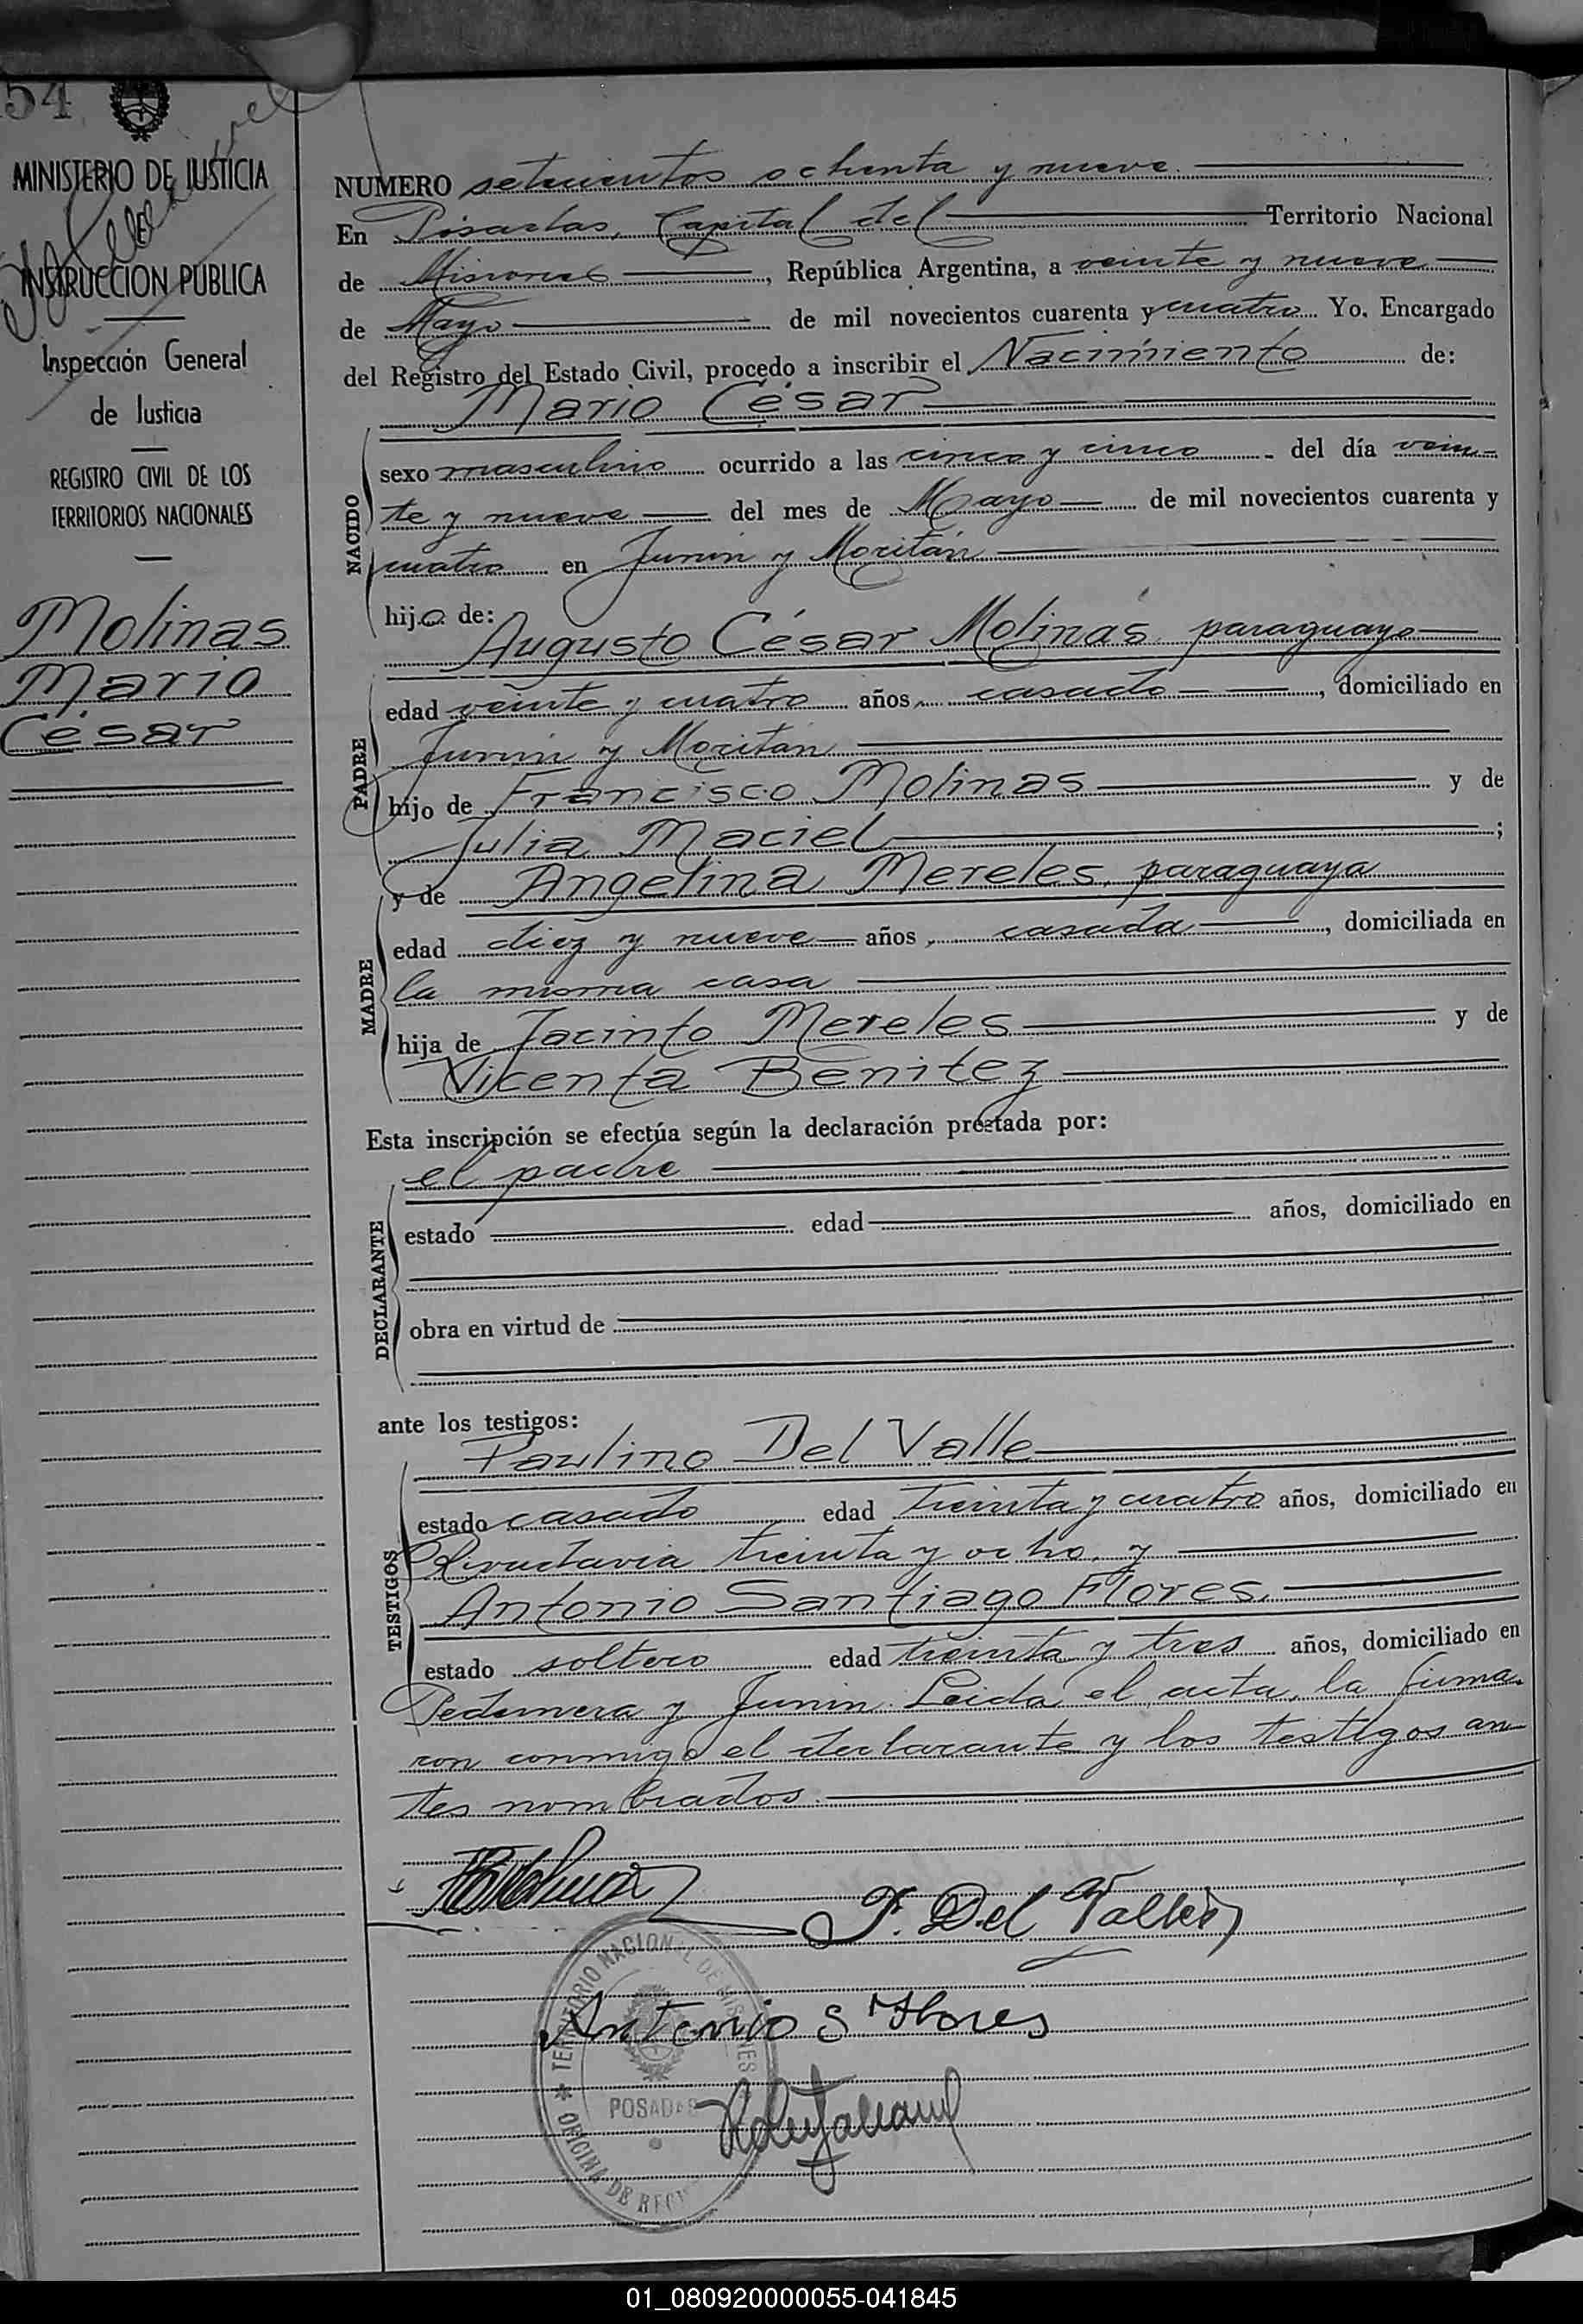 54
MINISTERIO DE JUSTICIA
INSTRUCCION PUBLICA
Inspección General
de Justicia
REGISTRO CIVIL DE LOS
TERRITORIOS NACIONALES
Molinas
Mario
César
NUMERO setecientos ochenta y nueve
En Posadas, Capital del Territorio Nacional
de Misiones, República Argentina, a veinte y nueve
de Mayo de mil novecientos cuarenta y cuatro. Yo, Encargado
del Registro del Estado Civil, procedo a inscribir el Nacimiento de:
Mario César
NACIDO
sexo masculino ocurrido a las cinco y cinco del día vein-
te y nueve del mes de Mayo de mil novecientos cuarenta y
cuatro en Junin y Moritán
hijo de:
Augusto César Molinas, paraguayo
PADRE
edad veinte y cuatro años, casado, domiciliado en
Junin y Moritán
hijo de Francisco Molinas y de
Julia Maciel;
y de Angelina Mereles, paraguaya
MADRE
edad diez y nueve años, casada, domiciliada en
la misma casa
hija de Jacinto Mereles y de
Vicenta Benitez
Esta inscripción se efectúa según la declaración prestada por:
el padre
DECLARANTE
estado edad años, domiciliado en
obra en virtud de
ante los testigos:
Paulino Del Valle
TESTIGOS
estado casado edad treinta y cuatro años, domiciliado en
treinta y ocho, y
Antonio Santiago Flores.
estado soltero edad treinta y tres años, domiciliado en
Pedernera y Junin. Leida el acta, la firma-
ron conmigo el declarante y los testigos an-
tes nombrados.
P. Del Valle
Antonio S Flores
TERRITORIO NACIONAL DE MISIONES
POSADAS
OFICINA DE
01_080920000055-041845